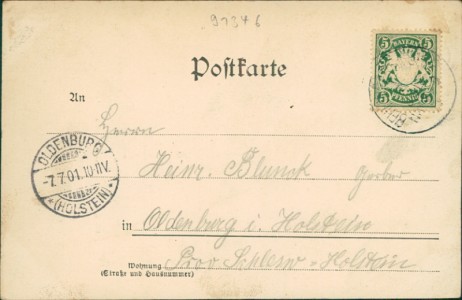 91346
Postkarte
5 BAYERN 5
5 PFENNIG 5
An
Herrn
OLDENBURG
-7.7.01.10-11V.
*(HOLSTEIN)*
Heinr. Blunck Gerber
in Oldenburg i. Holstein
Wohnung Prov Schlesw-Holstein
(Straße und Hausnummer)